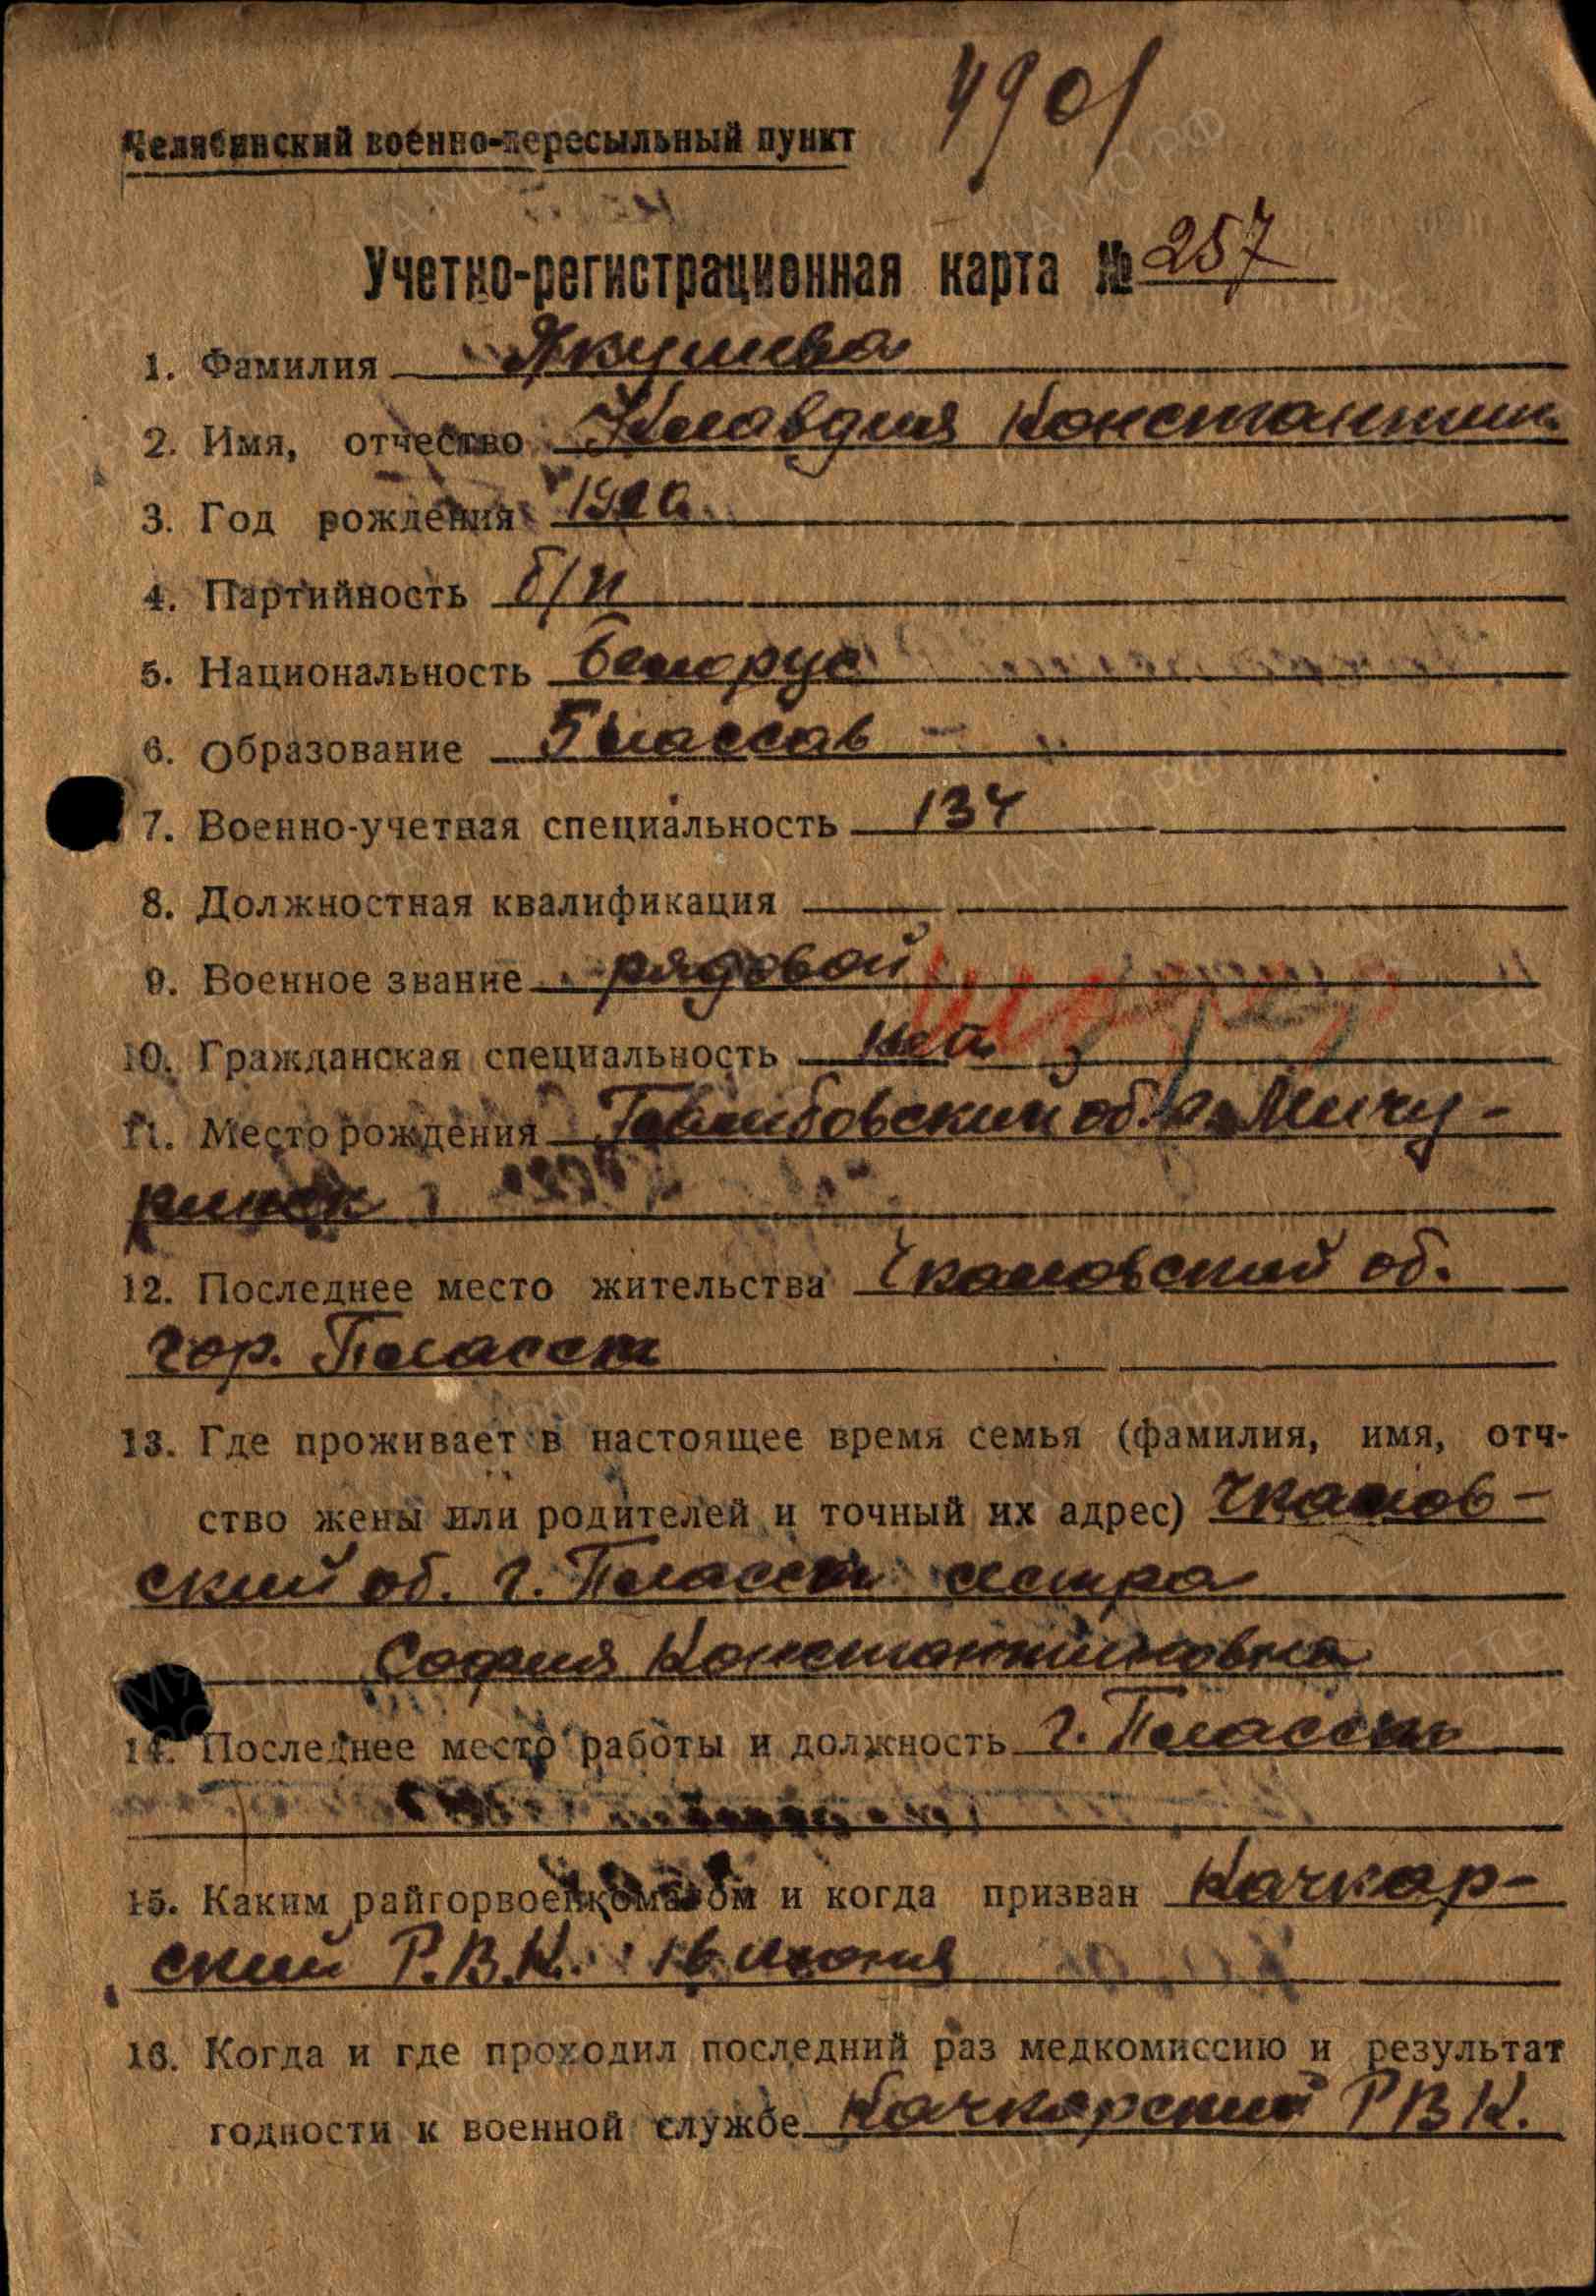 4901
Челябинский военно-пересыльный пункт
Учетно-регистрационная карта № 257
1. Фамилия Якушева
2. Имя, отчество Клавдия Константин.
3. Год рождения
4. Партийность б/п
5. Национальность белорус
6. Образование 5 классов
7. Военно-учетная специальность 134
8. Должностная квалификация
9. Военное звание рядовой
10. Гражданская специальность
11. Место рождения Тамбовский об. г. Мичу-
ринск
12. Последнее место жительства Чкаловский об.
гор. Пласст
13. Где проживает в настоящее время семья (фамилия, имя, отч-
ство жены или родителей и точный их адрес) Чкалов-
ский об. г. Пласст сестра
София Константиновна
14. Последнее место работы и должность г. Пласст
15. Каким райгорвоенкоматом и когда призван Качкар-
ский Р.В.К. 16 июня
16. Когда и где проходил последний раз медкомиссию и результат
годности к военной службе Качкарский РВК.